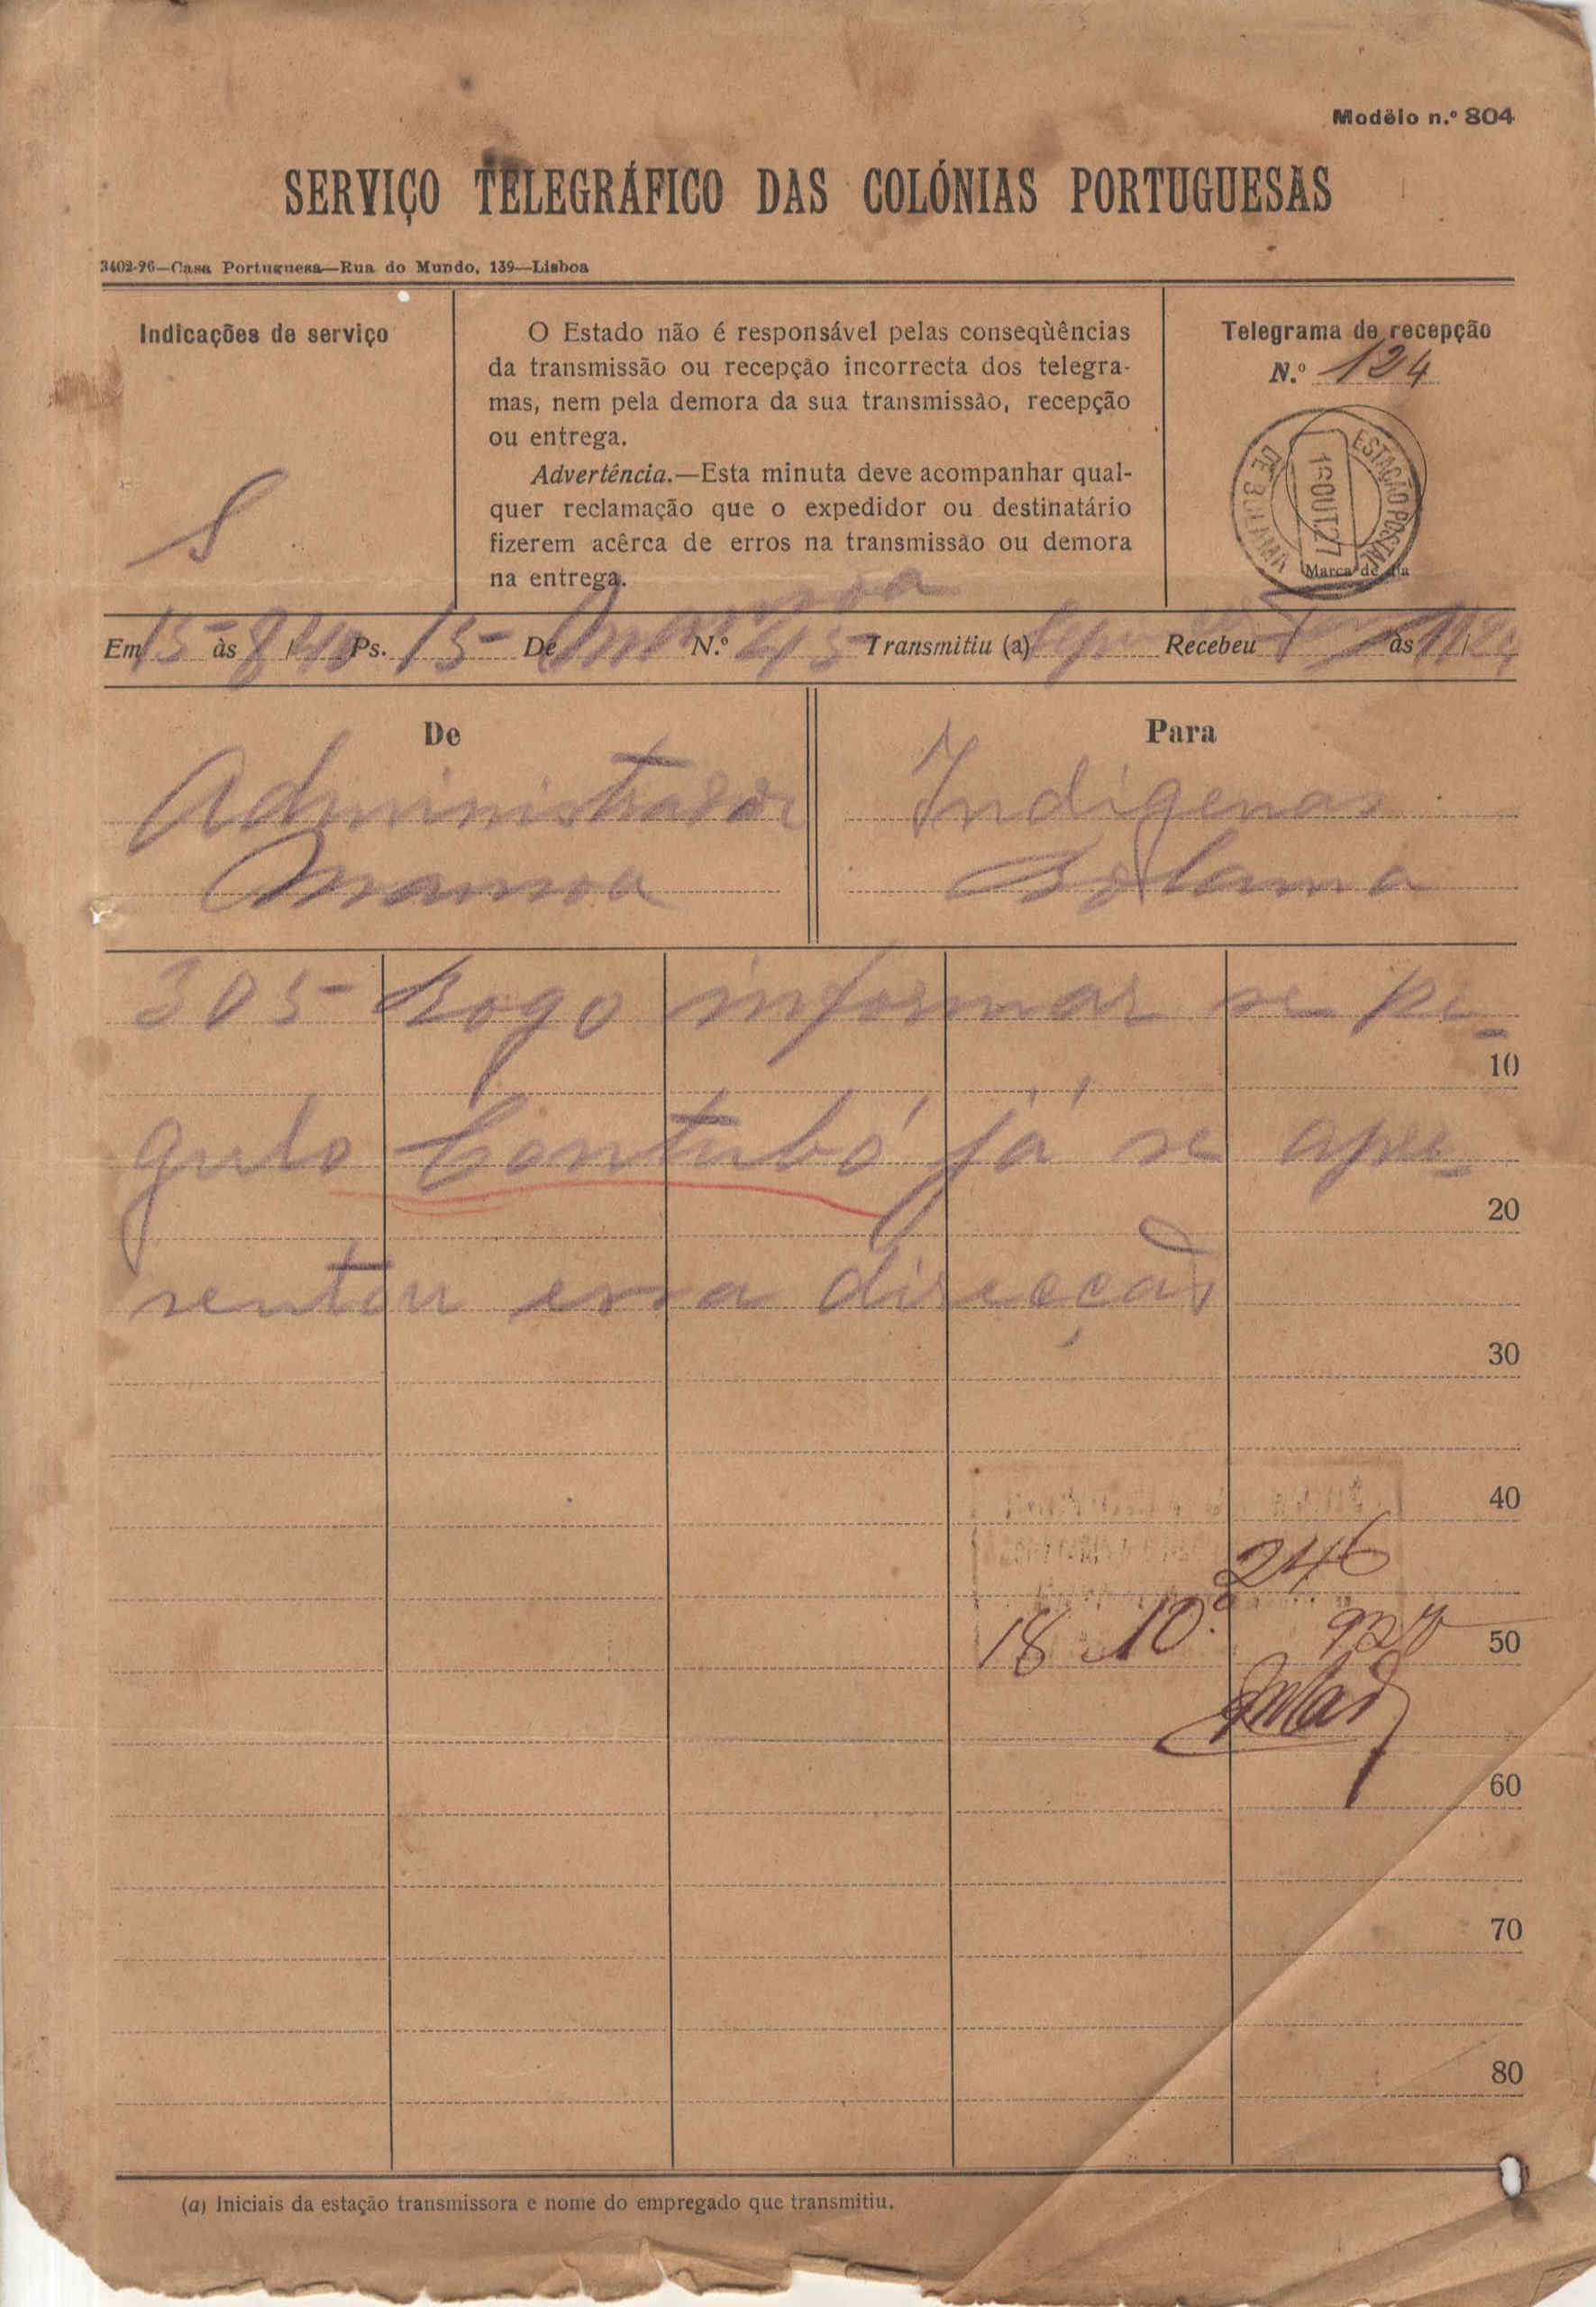 Modêlo n.º 804
SERVIÇO TELEGRÁFICO DAS COLÓNIAS PORTUGUESAS
3402-96—Casa Portuguesa—Rua do Mundo, 139—Lisboa
Indicações de serviço
S
O Estado não é responsável pelas conseqüências
da transmissão ou recepção incorrecta dos telegra-
mas, nem pela demora da sua transmissão, recepção
ou entrega.
Advertência.—Esta minuta deve acompanhar qual-
quer reclamação que o expedidor ou destinatário
fizerem acêrca de erros na transmissão ou demora
na entrega.
Telegrama de recepção
N.º 124
ESTAÇÃO POSTAL
DE BOLAMA
OUT.27
Marca de dia
Em 15 às 8/40 Ps. 15- De Mansoa N.º 45 Transmitiu (a) Recebeu às 11/24
De
Administrador
Mansoa
Para
Indigenas
Bolama
305- Rogo informar se re-
gulo Contubó já se apre-
sentou essa direcção
10
20
30
40
246
18 10.º 927
50
60
70
80
(a) Iniciais da estação transmissora e nome do empregado que transmitiu.